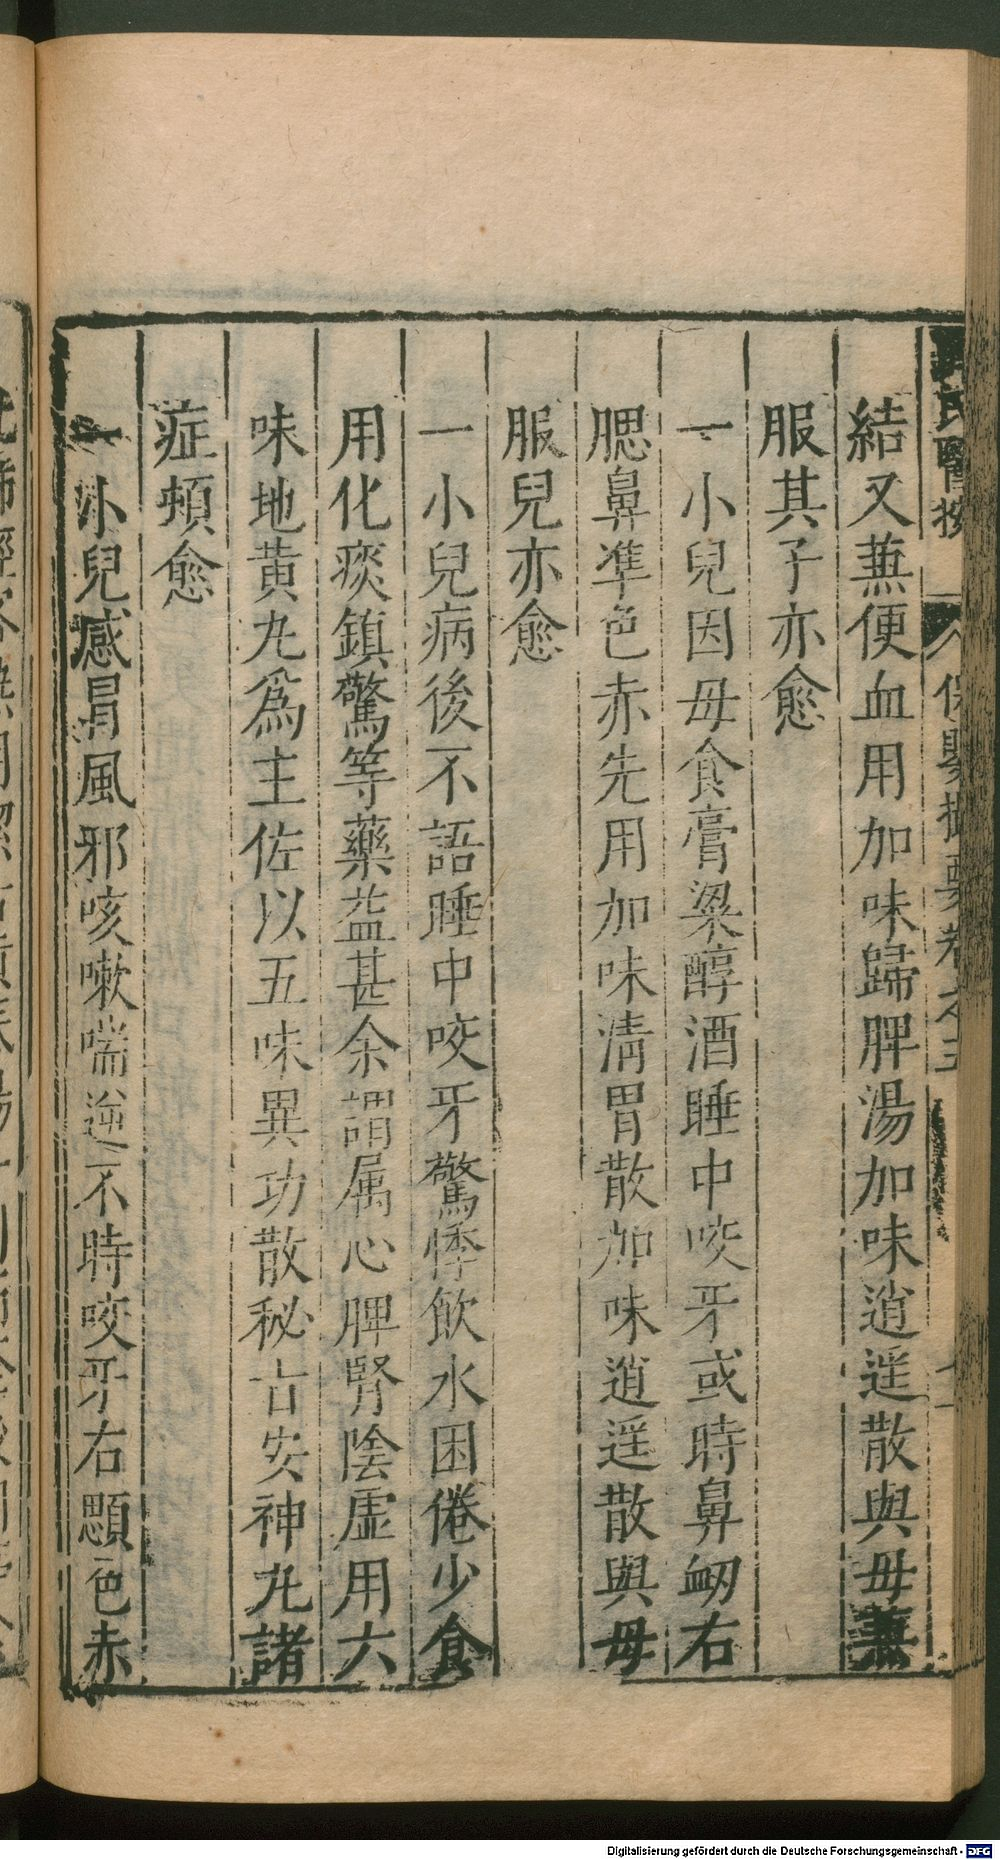 氏醫按 保嬰撮要卷之三
結又蕪便血用加味歸脾湯加味逍遥散與毋蕪
服其子亦愈
一小兒因毋食膏粱醇酒睡中咬牙或時鼻衂右
腮鼻準色赤先用加味清胃散加味逍遥散與毋
服兒亦愈
一小兒病後不語睡中咬牙驚悸飲水困倦少食
用化痰鎮驚等藥益甚余謂属心脾腎陰虛用六
味地黄丸爲主佐以五味異功散秘古安神丸諸
症頓愈
一小兒感冐風邪咳嗽喘逆不時咬牙右顋色赤
Digitalisierung gefördert durch die Deutsche Forschungsgemeinschaft - DFG